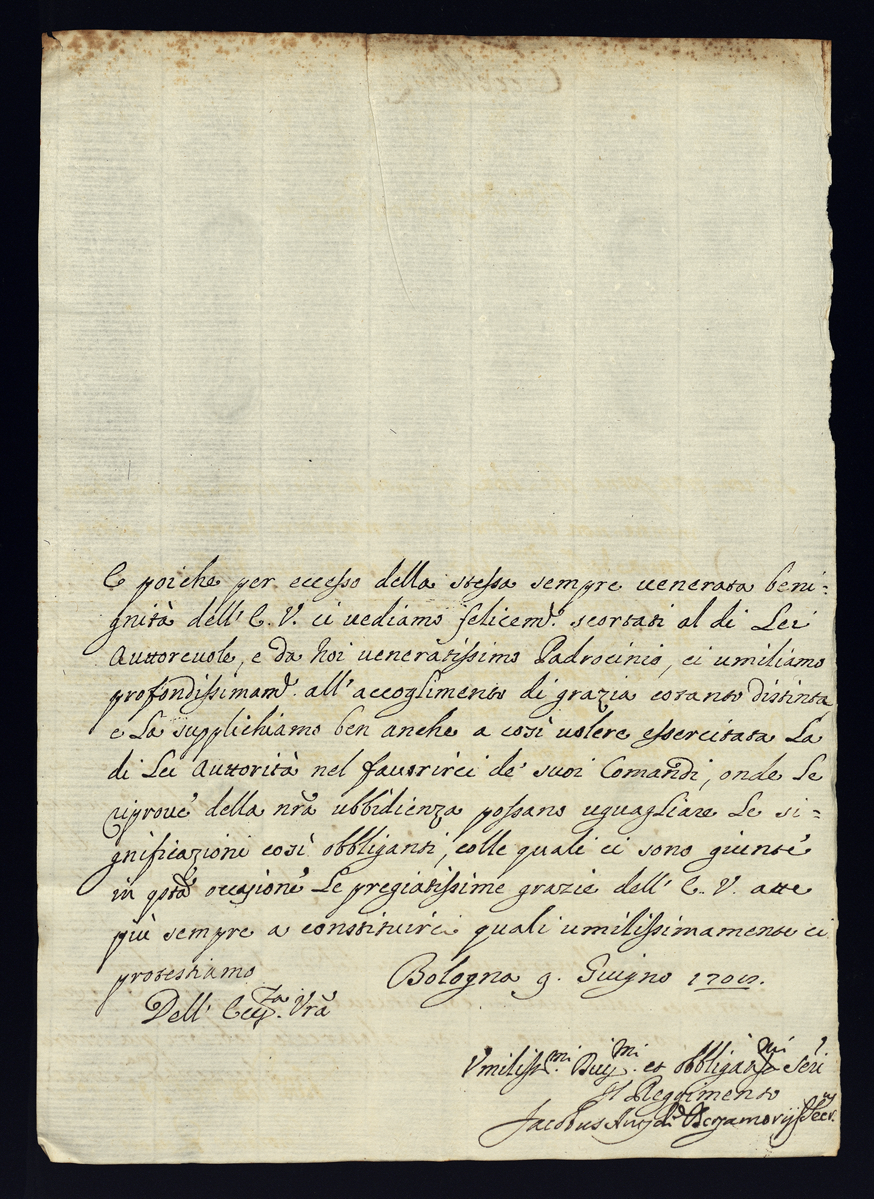 E poiche per eccesso della stessa sempre venerata beni-
gnità dell' E. V. ci vediamo felicem.e scortati al di Lei
Auttorevole, e da noi veneratissimo Padrocinio, ci umiliamo
profondissimam.e all' accoglimento di grazia cotanto distinta
e La supplichiamo ben anche a così volere essercitata La
di Lei Auttorità nel favorirci de' suoi Comandi, onde Le
riprove della nr̃a ubbidienza possano uguagliare Le si-
gnificazioni così obbliganti, colle quali ci sono giunte
in qstã occasione Le pregiatissime grazie dell' E. V. atte
più sempre a constituirci quali umilissimamente ci
protestiamo Bologna 9. Giugno
Dell' Ecc.za Vrã
Umiliss.mi et obbligat.mi
Il Reggimento
Jacobus Secr.